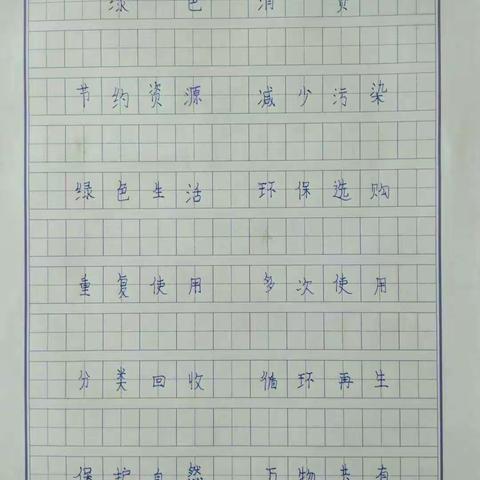 绿色消费
节约资源 减少污染
绿色生活 环保选购
重复使用 多次使用
分类回收 循环再生
保护自然 万物共有